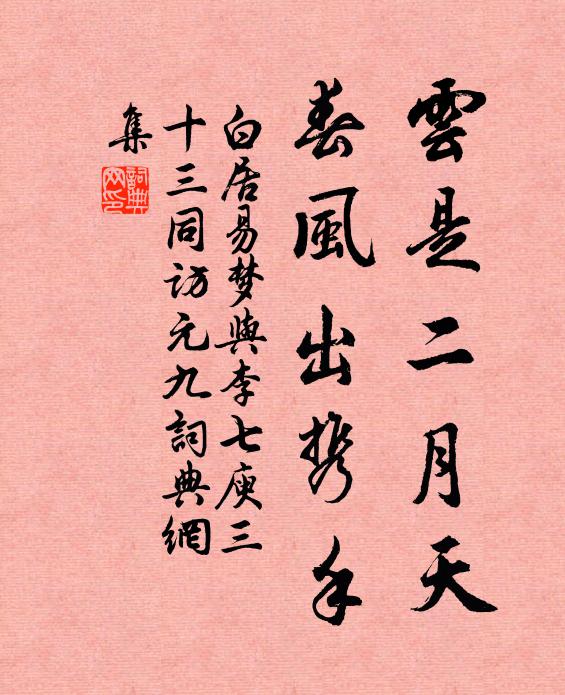 雲是二月天
春風出携手
白居易梦與李七庾三
十三同访元九詞典網
集
詞典
网印